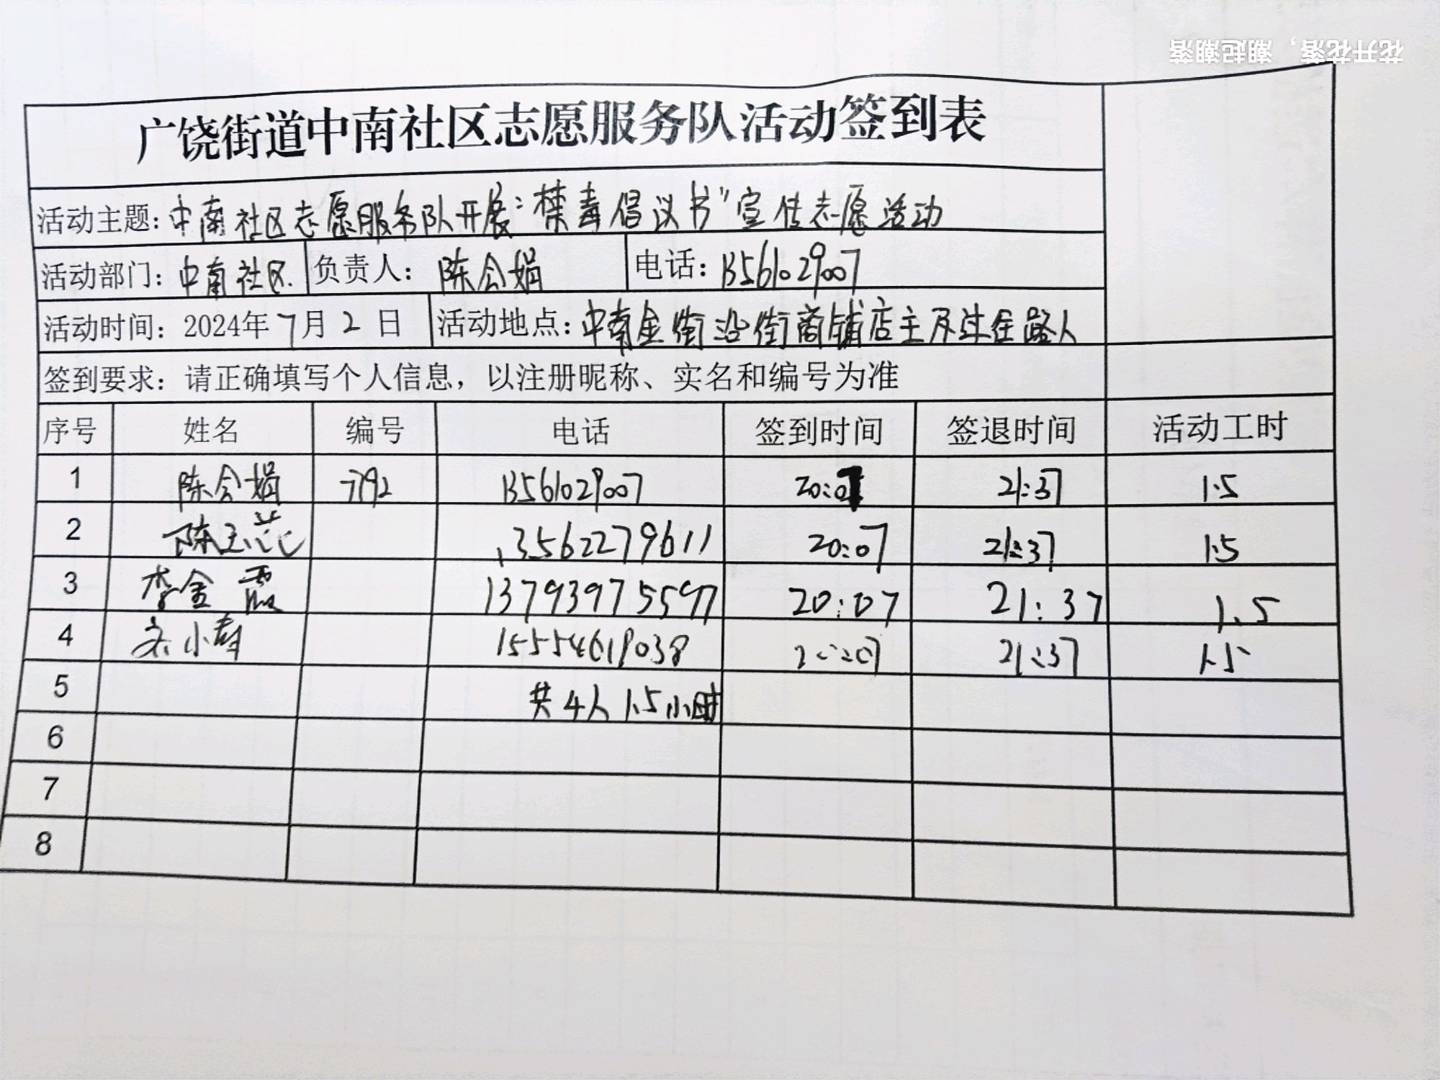 花开花落，潮起潮落
广饶街道中南社区志愿服务队活动签到表
活动主题：中南社区志愿服务队开展“禁毒倡议书”宣传志愿活动
活动部门：中南社区 负责人：陈会娟 电话：13561029007
活动时间：2024年7月2日 活动地点：中南金街沿街商铺店主及过往路人
签到要求：请正确填写个人信息，以注册昵称、实名和编号为准
序号 姓名 编号 电话 签到时间 签退时间 活动工时
1 陈会娟 7192 13561029007 20:07 21:37 1.5
2 陈玉芹 13562279611 20:07 21:37 1.5
3 李金霞 13793975597 20:07 21:37 1.5
4 15554619038 20:07 21:37 1.5
5 共4人 1.5小时
6
7
8